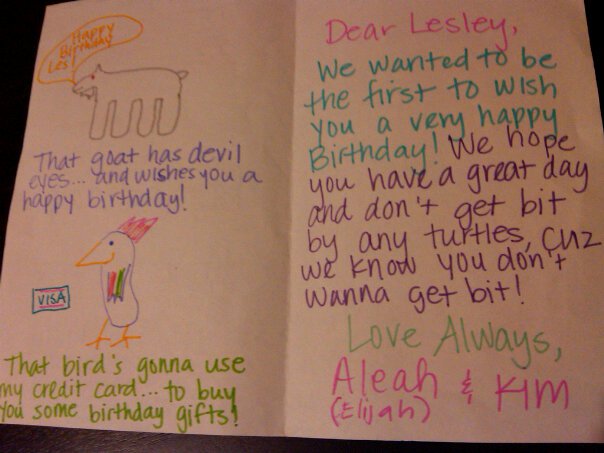 Happy
Birthday
Les!
That goat has devil
eyes... and wishes you a
happy birthday!
VISA
That bird's gonna use
my credit card... to buy
you some birthday gifts!
Dear Lesley,
We wanted to be
the first to wish
you a very happy
Birthday! We hope
you have a great day
and don't get bit
by any turtles, cuz
we know you don't
wanna get bit!
Love Always,
Aleah & Kim
(Elijah)